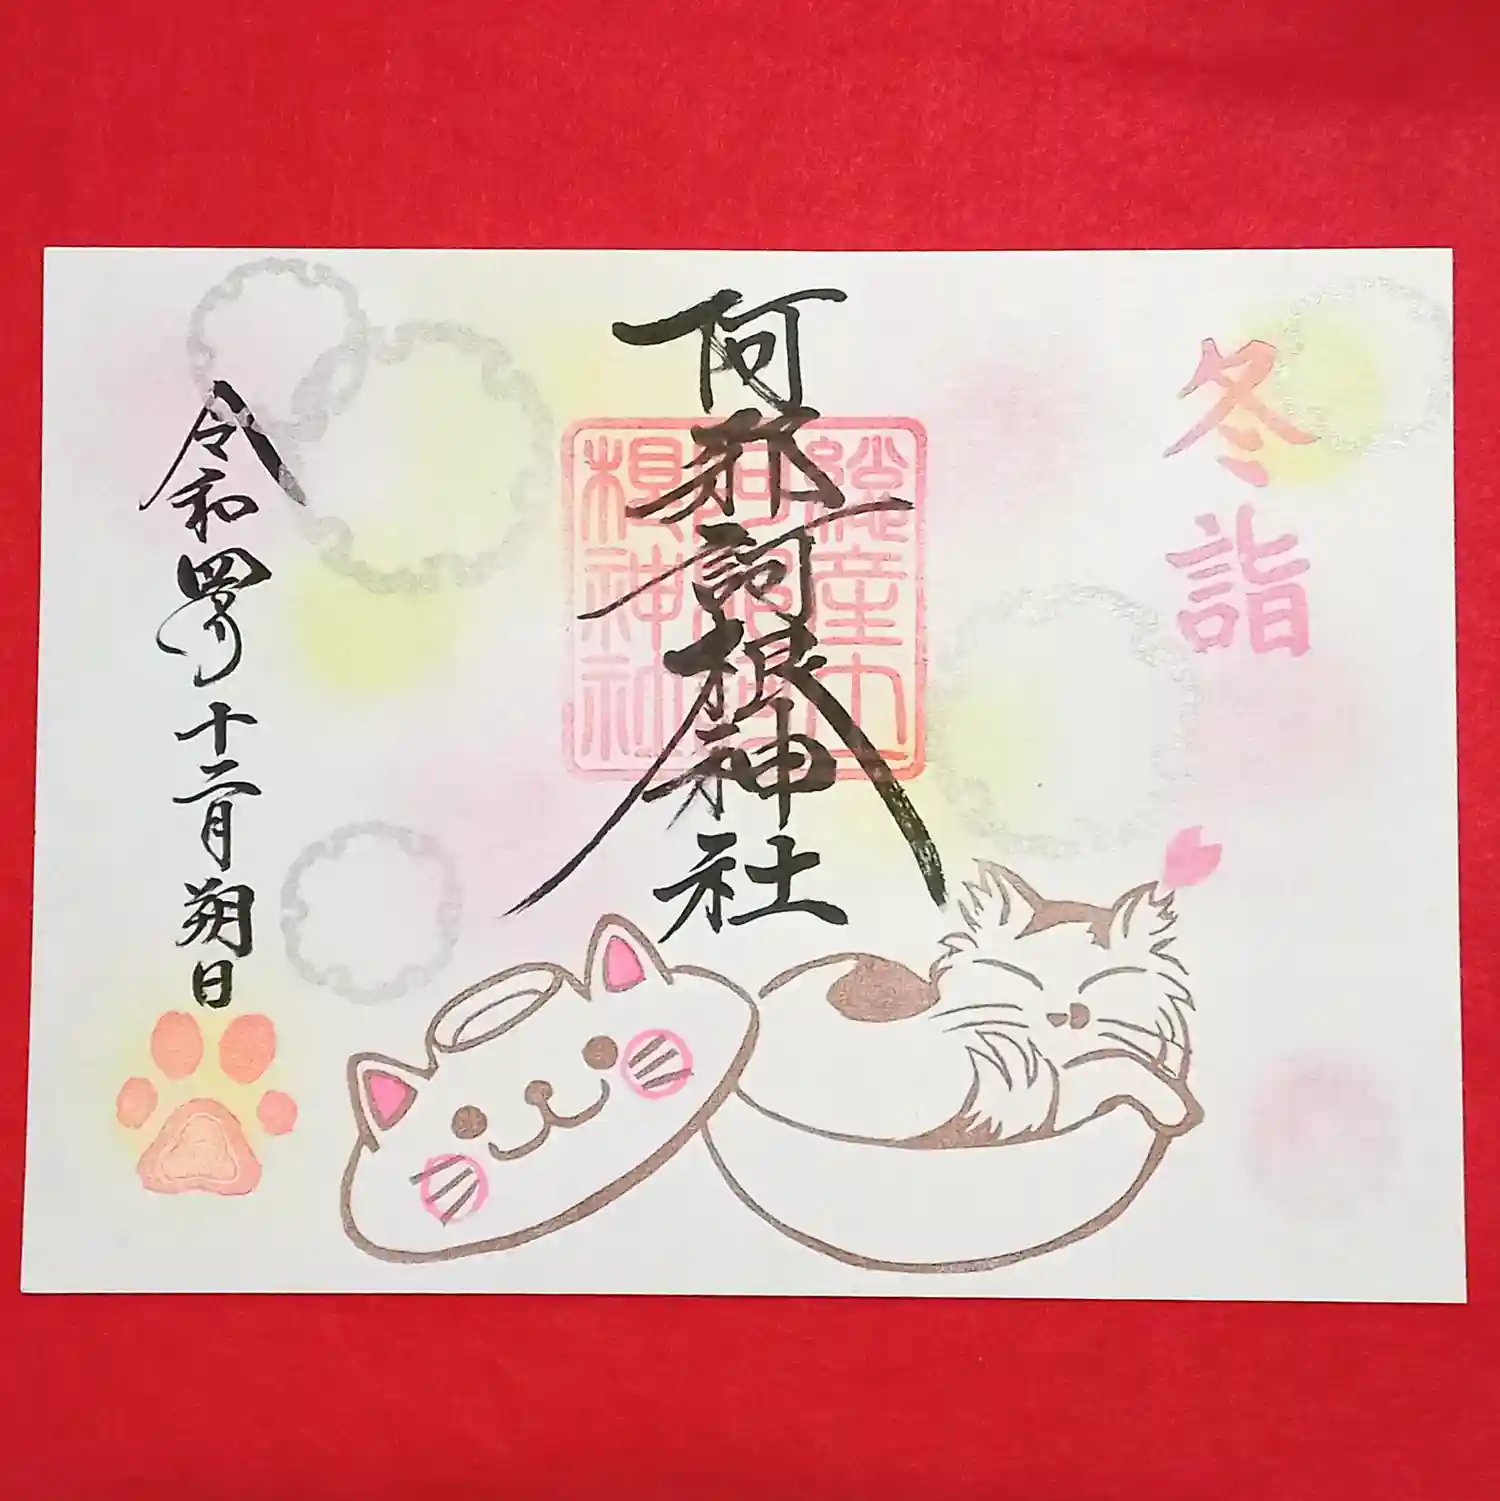 冬詣
阿邪訶根神社
總産土
阿邪訶
根神社
令和四年十二月朔日